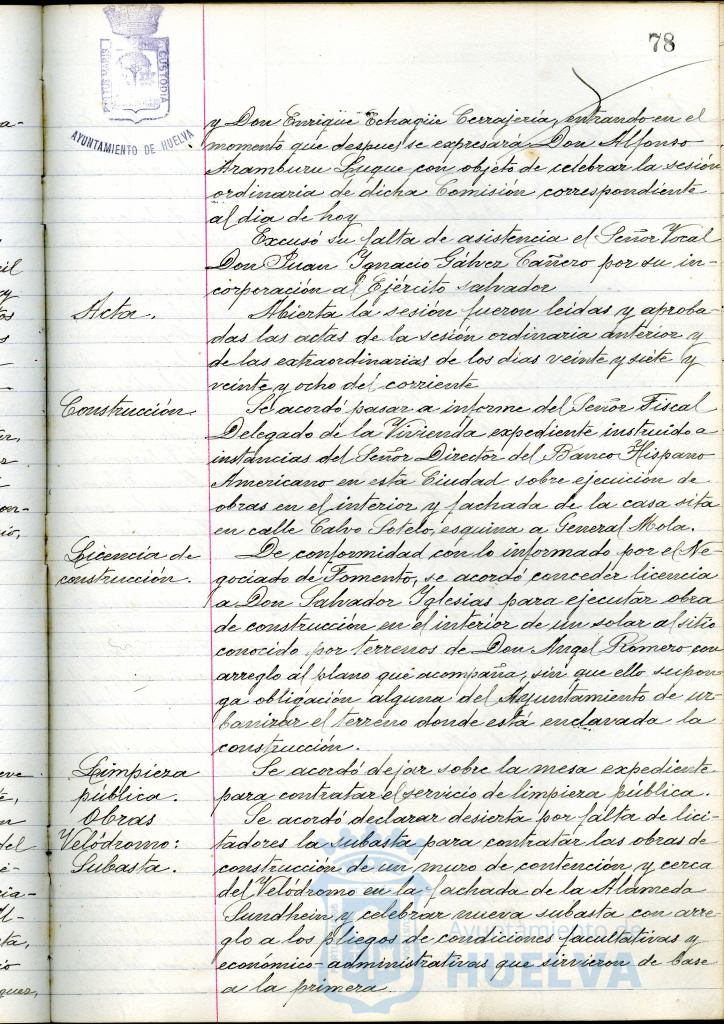 78
CUSTODIA
AYUNTAMIENTO DE HUELVA
y Don Enrique Echagüe Cerrajería, entrando en el
momento que despues se expresará Don Alfonso
Aramburu Luque con objeto de celebrar la sesión
ordinaria de dicha Comisión correspondiente
al dia de hoy
Excusó su falta de asistencia el Señor Vocal
Don Juan Ignacio Gálvez Cañero por su in-
corporación al Ejército salvador
Acta.
Abierta la sesión fueron leidas y aproba-
das las actas de la sesión ordinaria anterior y
de las extraordinarias de los dias veinte y siete y
veinte y ocho del corriente
Construcción.
Se acordó pasar a informe del Señor Fiscal
Delegado de la Vivienda expediente instruido a
instancias del Señor Director del Banco Hispano
Americano en esta Ciudad sobre ejecución de
obras en el interior y fachada de la casa sita
en calle Calvo Sotelo, esquina a General Mola.
Licencia de
construcción.
De conformidad con lo informado por el Ne-
gociado de Fomento, se acordó conceder licencia
a Don Salvador Yglesias para ejecutar obra
de construcción en el interior de un solar al sitio
conocido por terrenos de Don Angel Romero con
arreglo al plano que acompaña, sin que ello supon-
ga obligación alguna del Ayuntamiento de ur-
banizar el terreno donde está enclavada la
construcción.
Limpieza
pública.
Se acordó dejar sobre la mesa expediente
para contratar el servicio de limpieza pública.
Obras
Velódromo:
Subasta.
Se acordó declarar desierta por falta de lici-
tadores la subasta para contratar las obras de
construcción de un muro de contención y cerca
del Velodromo en la fachada de la Alameda
Sundhein y celebrar nueva subasta con arre-
glo a los pliegos de condiciones facultativas y
económico-administrativas que sirvieron de base
a la primera
Ayuntamiento de
HUELVA